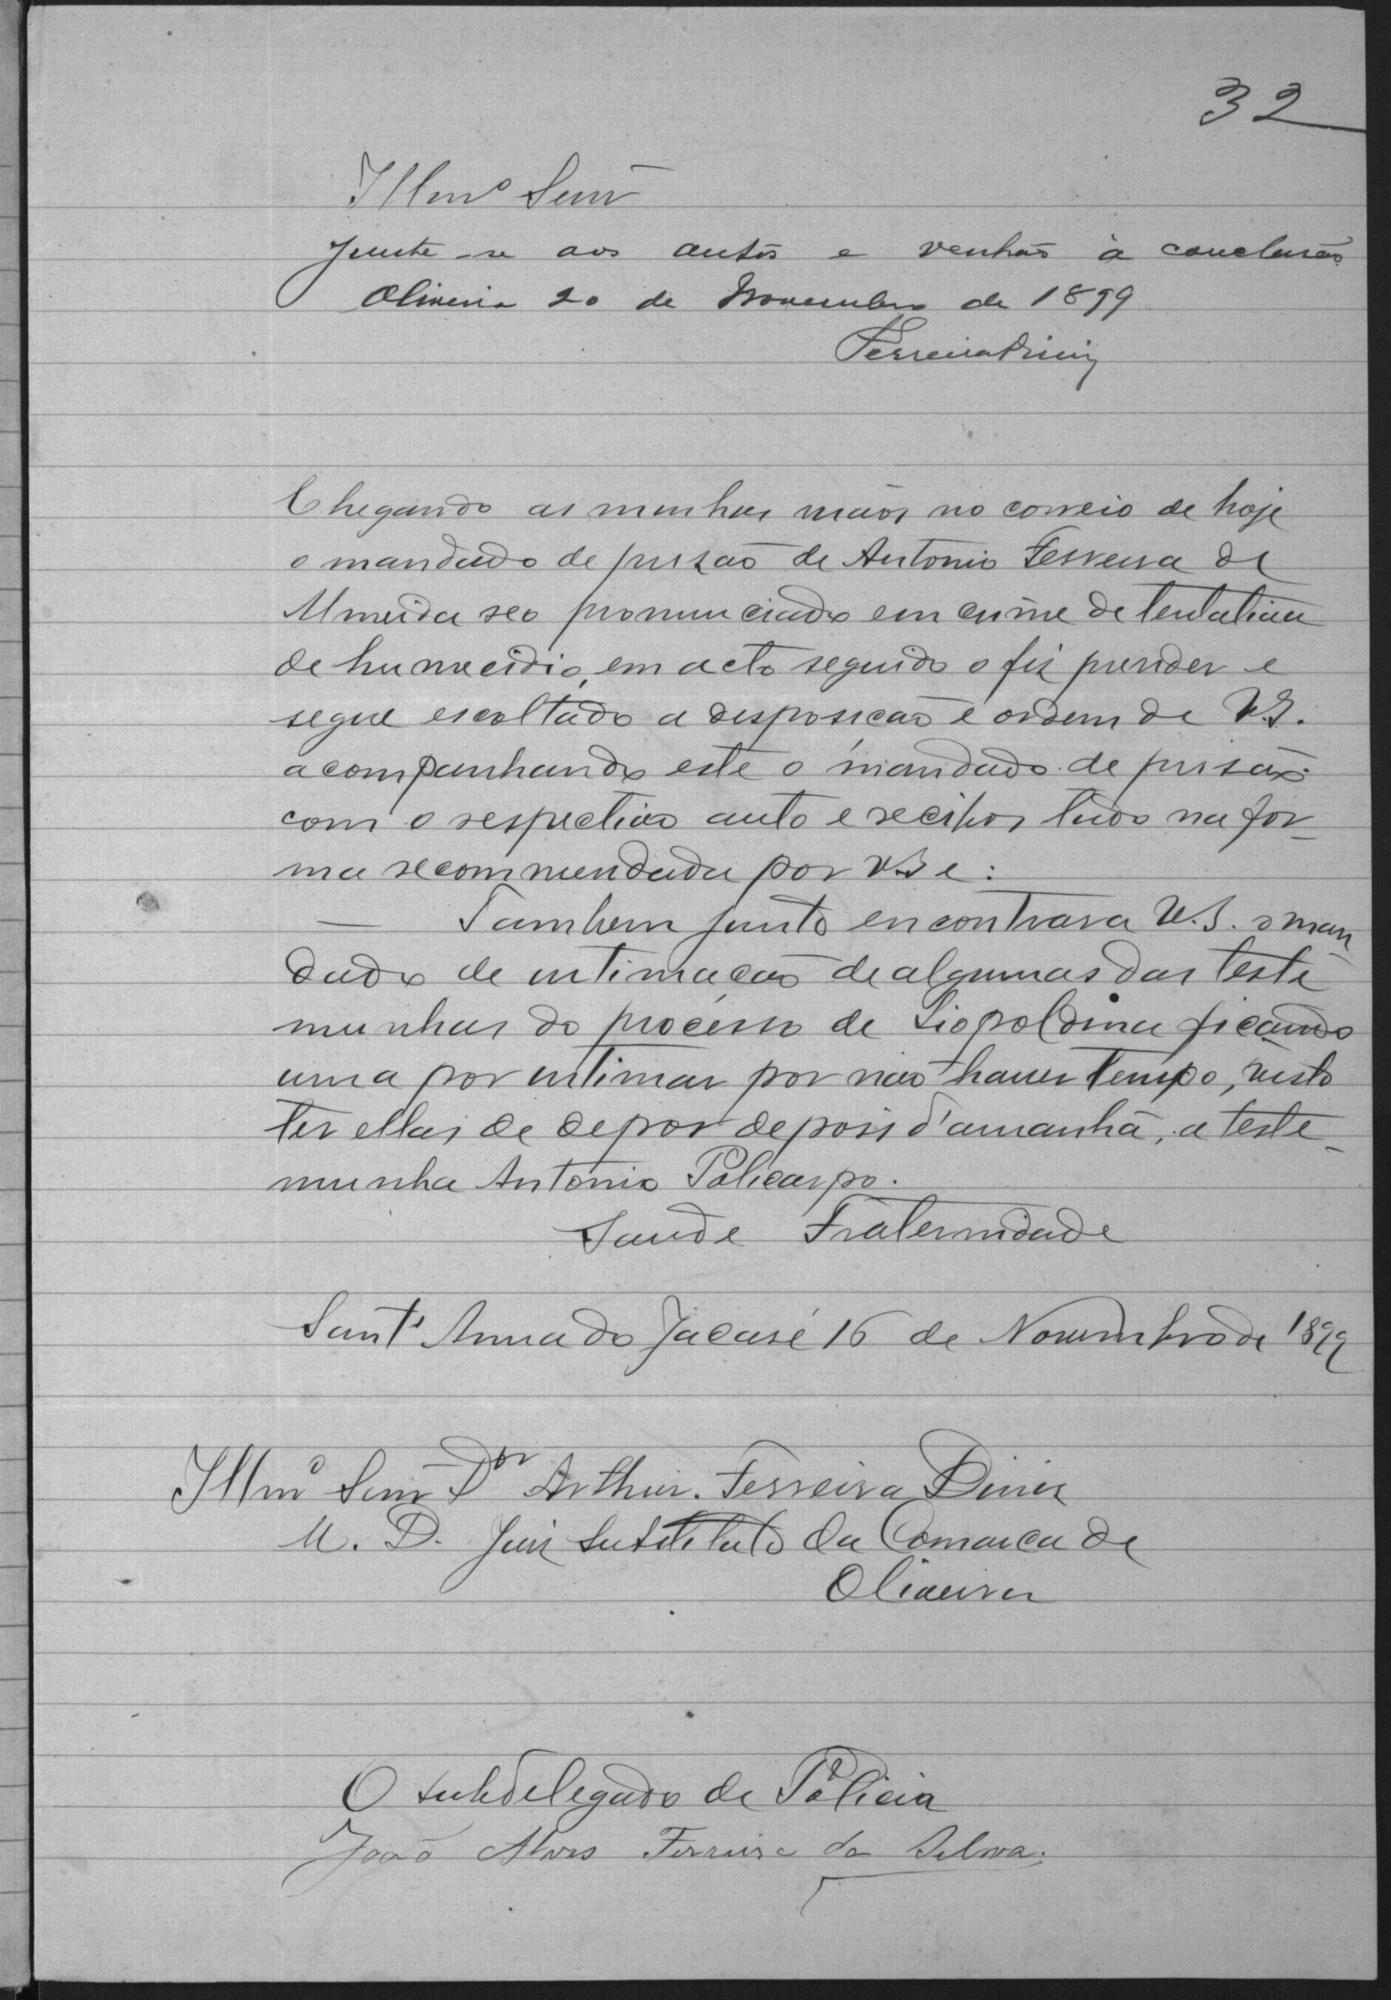 32
Illmº Senr
Junte-se aos autos e venhão à conclusão
Oliveira 20 de Novembro de 1899
Ferreira Diniz
Chegando as minhas mãos no correio de hoje
o mandado de prizão de Antonio Ferreira de
Almeida reo pronunciado em crime de tentativa
de humecidio, em acto seguido o fiz prender e
segue escoltado a desposicão e ordem de V.S.
acompanhando este o mandado de prisão
com o respectivo auto e recibos tudo na for-
ma recommendada por VS e:
— Tambem junto encontrara V.S. o man
dado de intimacão de algumas das teste
munhas do processo de Liopoldina ficando
uma por intimar por não haver tempo, visto
ter ellas de depor depois d'amanhã, a teste-
munha Antonio Policarpo.
Saude Fraternidade
Sant'Anna do Jacaré 16 de Novembro de 1899
Illmº Senr Dor Arthur Ferreira Diniz
M. D. Juiz Substituto da Comarca de
Oliveira
O subdelegado de Policia
João Alves Ferreira da Silva